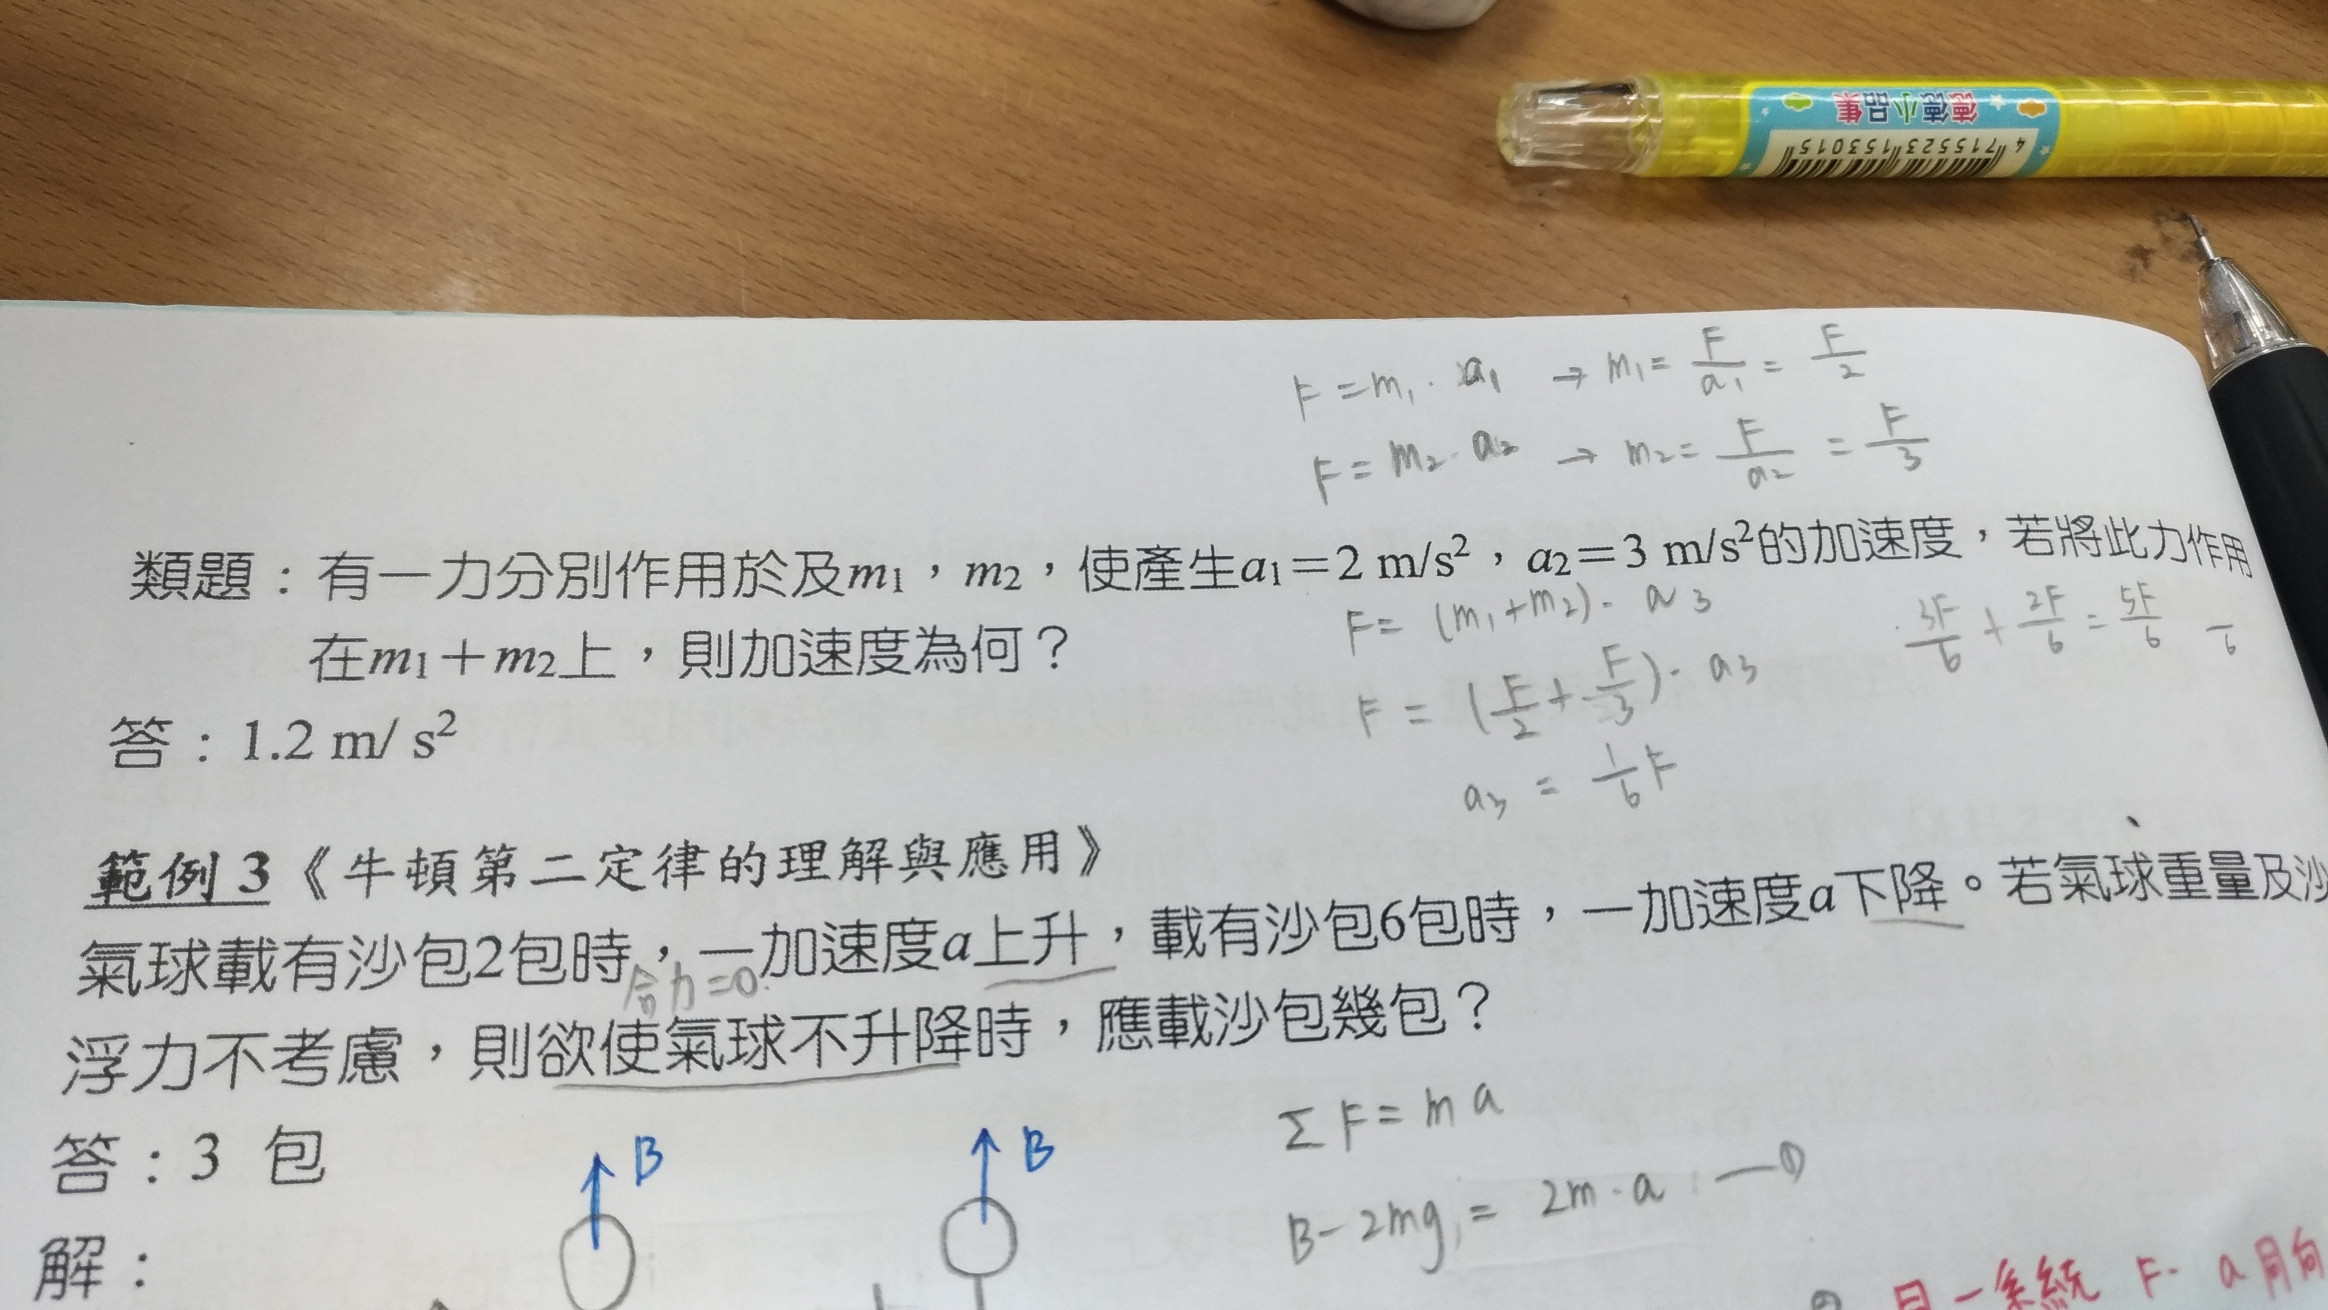 德德小品集
4 715523 153015
F=m₁·a₁ → m₁= F/a₁ = F/2
F=m₂·a₂ → m₂= F/a₂ = F/3
類題：有一力分別作用於及m₁，m₂，使產生a₁＝2 m/s²，a₂＝3 m/s²的加速度，若將此力作用
在m₁＋m₂上，則加速度為何？
F= (m₁+m₂)· a₃
3F/6 + 2F/6 = 5F/6
F = (F/2+F/3)· a₃
答：1.2 m/ s²
a₃ = 1/6 F
範例 3《牛頓第二定律的理解與應用》
氣球載有沙包2包時，一加速度a上升，載有沙包6包時，一加速度a下降。若氣球重量及沙
合力=0
浮力不考慮，則欲使氣球不升降時，應載沙包幾包？
答：3 包
Σ F= m a
B
B
B-2mg = 2m·a —①
解：
一系統 F· a 同向